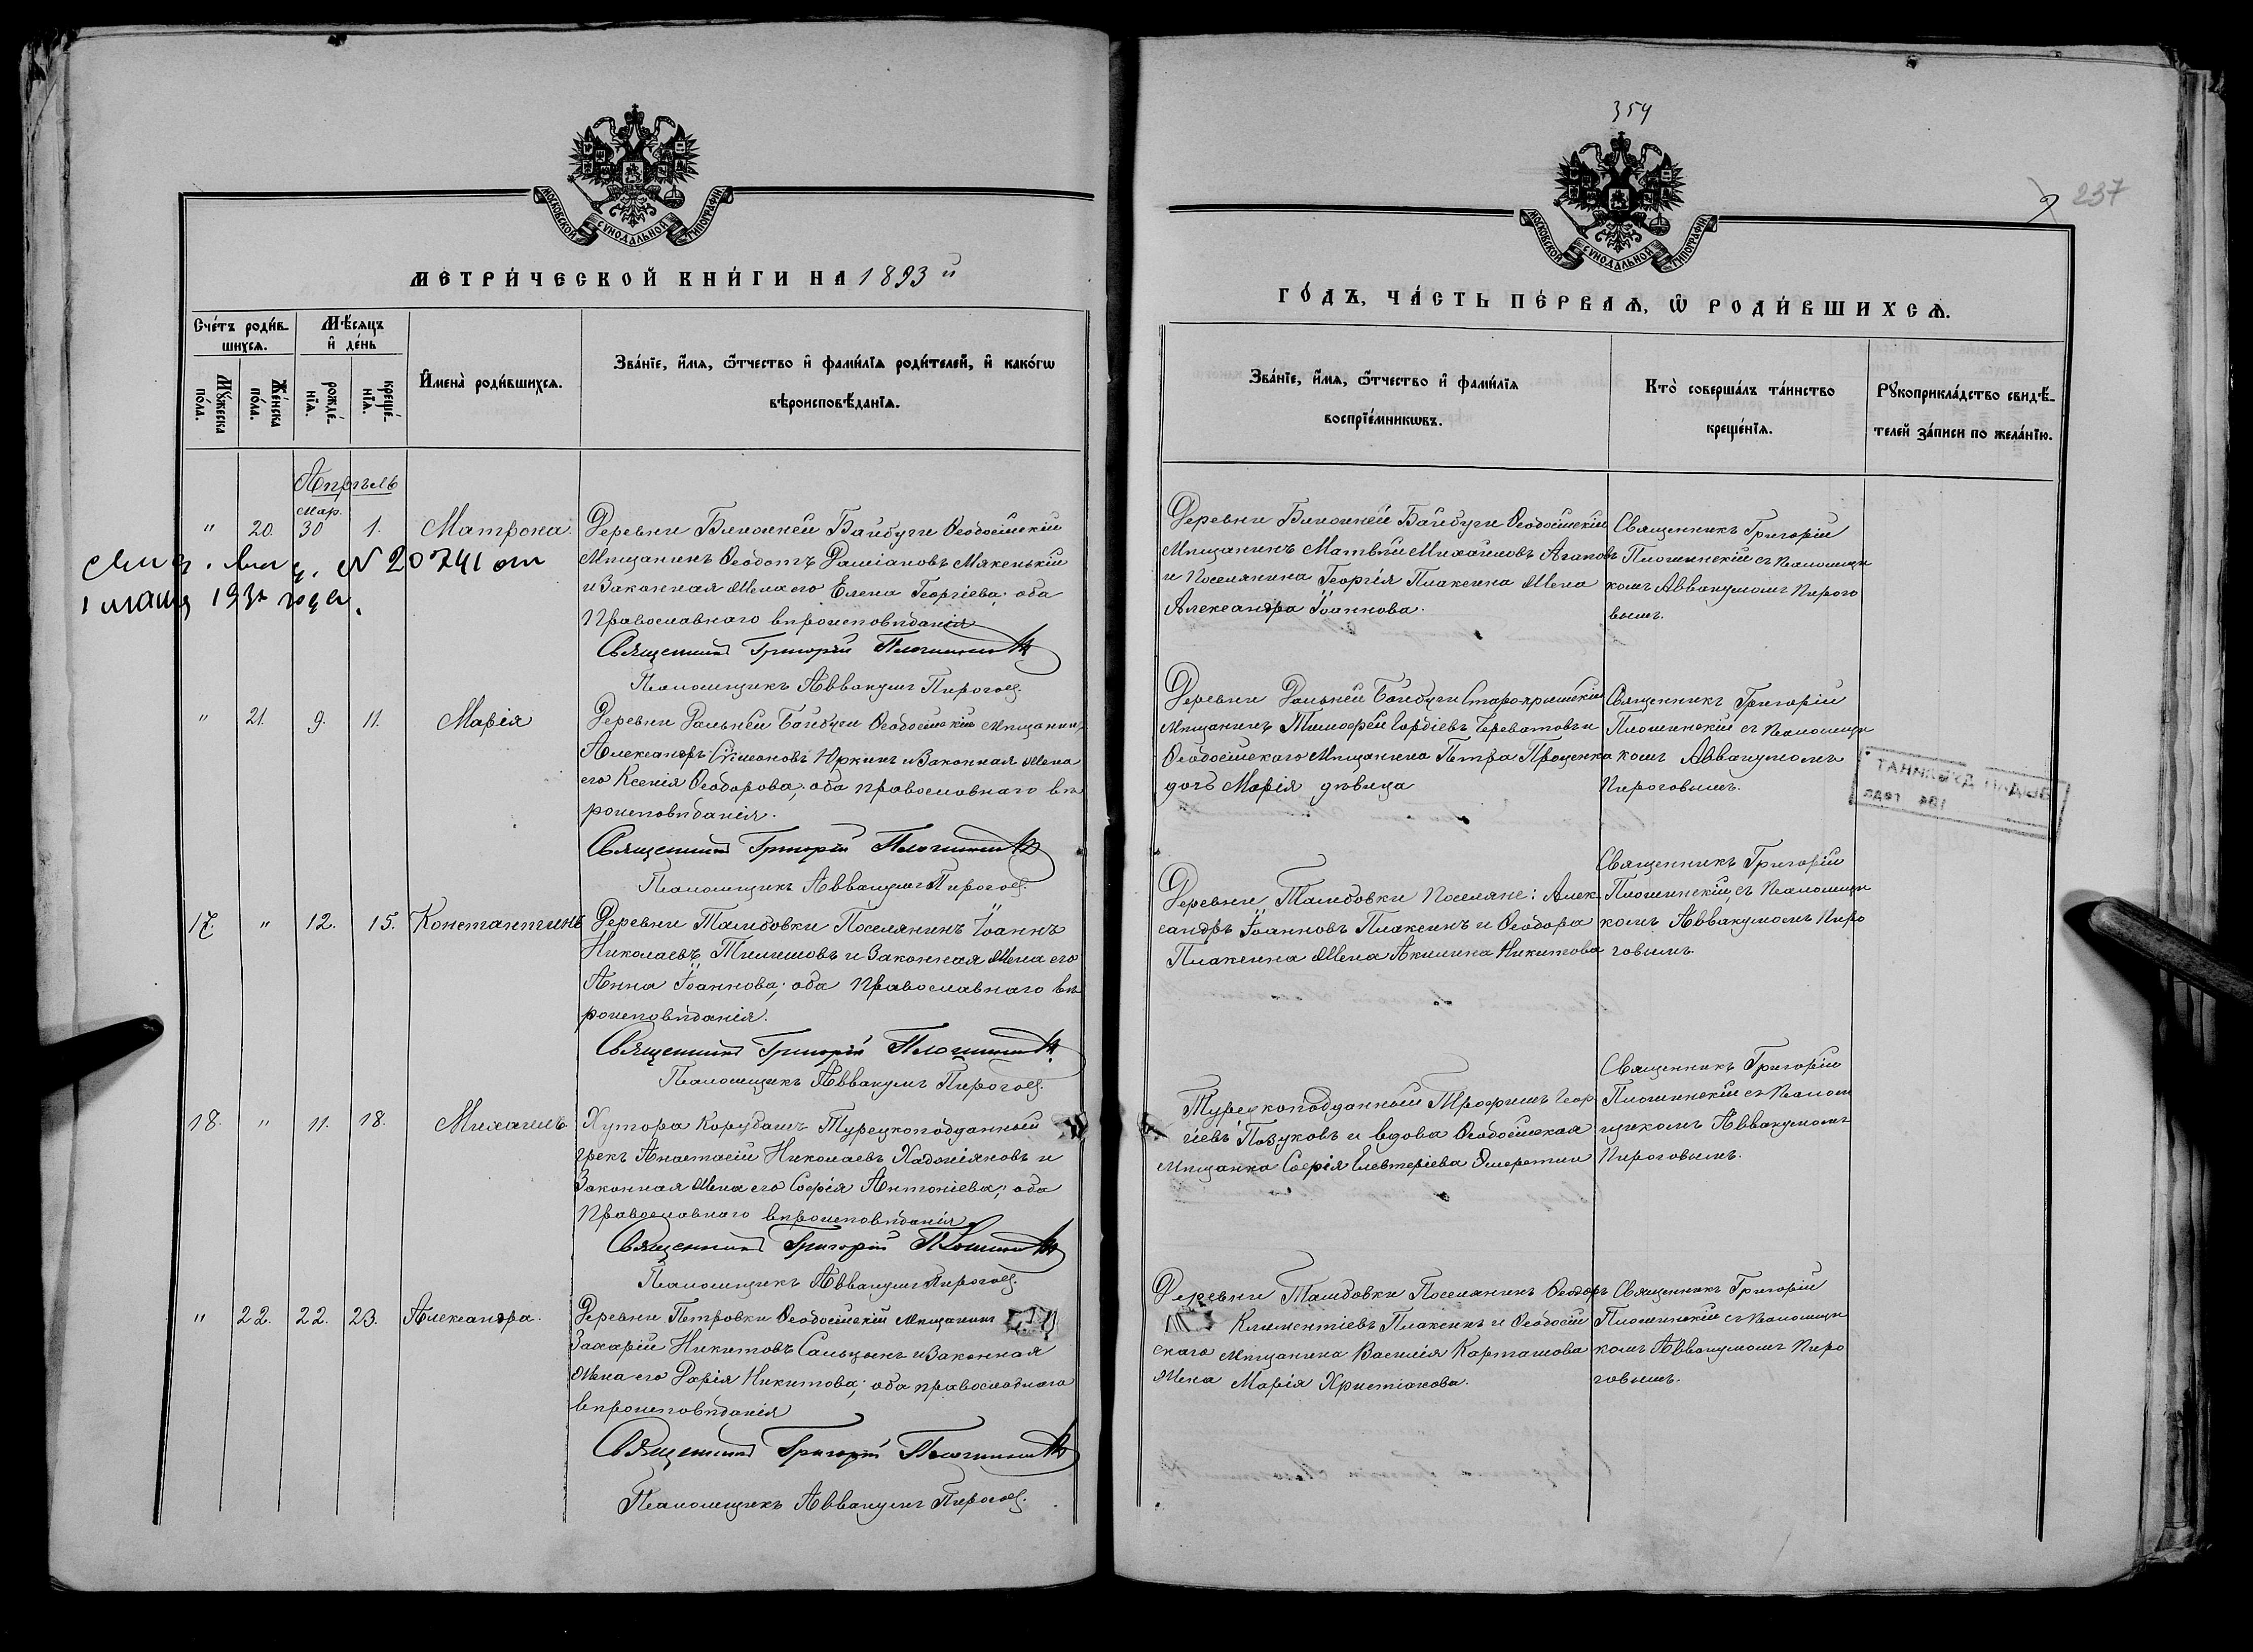 354
237
МОСКОВСКОЙ СУНОДАЛЬНОЙ ТИПОГРАФІИ
МЕТРИ́ЧЕСКОЙ КНИ́ГИ НА 1893 й
Сче́тъ роди́вшихсѧ.
Мѣ́сѧцъ и҆ де́нь
И҆мена̀ роди́вшихсѧ.
Зва́нїе, и҆́мѧ, ѻ҆́тчество и҆ фами́лїѧ роди́телей, и҆ како́гѡ
вѣроисповѣ́данїѧ.
Мꙋ́жеска по́ла.
Же́нска по́ла.
рожде́нїѧ.
креще́нїѧ.
Апрѣль
" 20. Мар. 30 1. Матрона.
Деревни Ближней Байбуги Ѳеодосійскій
Мѣщанинъ Ѳеодотъ Даміановъ Мякенькій
и Законная Жена его Елена Георгіева; оба
Православнаго вѣроисповѣданія
Священникъ Григорій
Псаломщикъ Аввакумъ Пироговъ.
N 20741 от
1 193 года.
" 21. 9. 11. Марія
Деревни Дальней Байбуги Ѳеодосійскій Мѣщанинъ
Александръ Сѵмеоновъ Юркинъ и Законная Жена
его Ксенія Ѳеодорова; оба православнаго вѣ
роисповѣданія.
Священникъ Григорій
Псаломщикъ Аввакумъ Пироговъ.
17. " 12. 15. Константинъ
Деревни Тамбовки Поселянинъ Іоаннъ
Николаевъ и Законная Жена его
Анна Іоаннова; оба Православнаго вѣ
роисповѣданія.
Священникъ Григорій
Псаломщикъ Аввакумъ Пироговъ.
18. " 11. 18. Михаилъ
Хутора Корубашъ Турецкоподданный
грекъ Анастасій Николаевъ Хаджіяновъ и
Законная Жена его Софія Антоніева; оба
Православнаго вѣроисповѣданія
Священникъ Григорій
Псаломщикъ Аввакумъ Пироговъ.
" 22. 22. 23. Александра.
Деревни Петровки Ѳеодосійскій Мѣщанинъ
Захарій Никитовъ и Законная
Жена его Дарія Никитова; оба православнаго
вѣроисповѣданія
Священникъ Григорій
Псаломщикъ Аввакумъ Пироговъ.
МОСКОВСКОЙ СУНОДАЛЬНОЙ ТИПОГРАФІИ
ГО́ДЪ, ЧА́СТЬ ПЕ́РВАѦ, Ѡ҆ РОДИ́ВШИХСѦ.
Зва́нїе, и҆́мѧ, ѻ҆́тчество и҆ фами́лїѧ
воспрїе́мникѡвъ.
Кто̀ соверша́лъ та́инство
креще́нїѧ.
Рꙋкоприкла́дство свидѣ́-
телей за́писи по жела́нїю.
Деревни Ближней Байбуги Ѳеодосійскій
Мѣщанинъ Матвѣй Михаиловъ Агаповъ
и Поселянина Георгія Плаксина Жена
Александра Іоаннова.
Священникъ Григорій
Плошинскій съ Псаломщи
комъ Аввакумомъ Пирого
вымъ.
Деревни Дальней Байбуги Старокрымскій
Мѣщанинъ Тимофей Гордіевъ Череватовъ и
Ѳеодосійскаго Мѣщанина Петра Проценка
дочь Марія дѣвица
Священникъ Григорій
Плошинскій съ Псаломщи
комъ Аввакумомъ
Пироговымъ.
Деревни Тамбовки Поселяне: Алек
сандръ Іоанновъ Плаксинъ и Ѳеодора
Плаксина Жена Акилина Никитова
Священникъ Григорій
Плошинскій съ Псаломщи
комъ Аввакумомъ Пиро
говымъ.
Турецкоподданный Трофимъ Геор
гіевъ и вдова Ѳеодосійская
Мѣщанка Софія Елевтеріева
Священникъ Григорій
Плошинскій съ Псалом
щикомъ Аввакумомъ
Пироговымъ.
Деревни Тамбовки Поселянинъ Ѳеодоръ
Климентіевъ Плаксинъ и Ѳеодосій
скаго Мѣщанина Василія Карташова
Жена Марія Христіанова.
Священникъ Григорій
Плошинскій съ Псаломщи
комъ Аввакумомъ Пиро
говымъ.